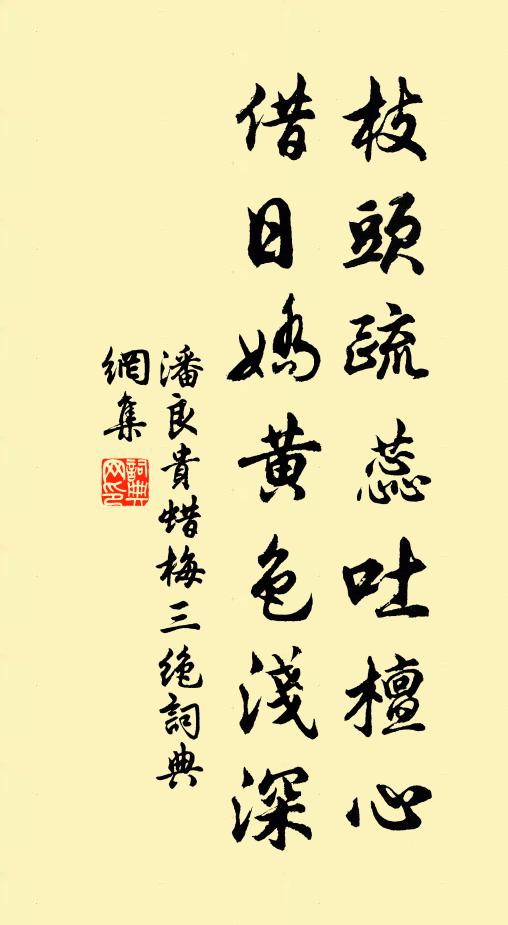 枝頭疏蕊吐檀心
借日嬌黃色淺深
潘良貴蜡梅三绝詞典
網集
詞典網印